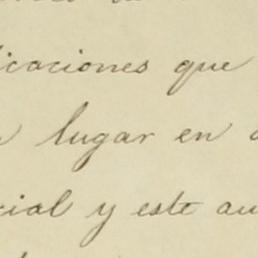 icaciones que
lugar en
cial y este au